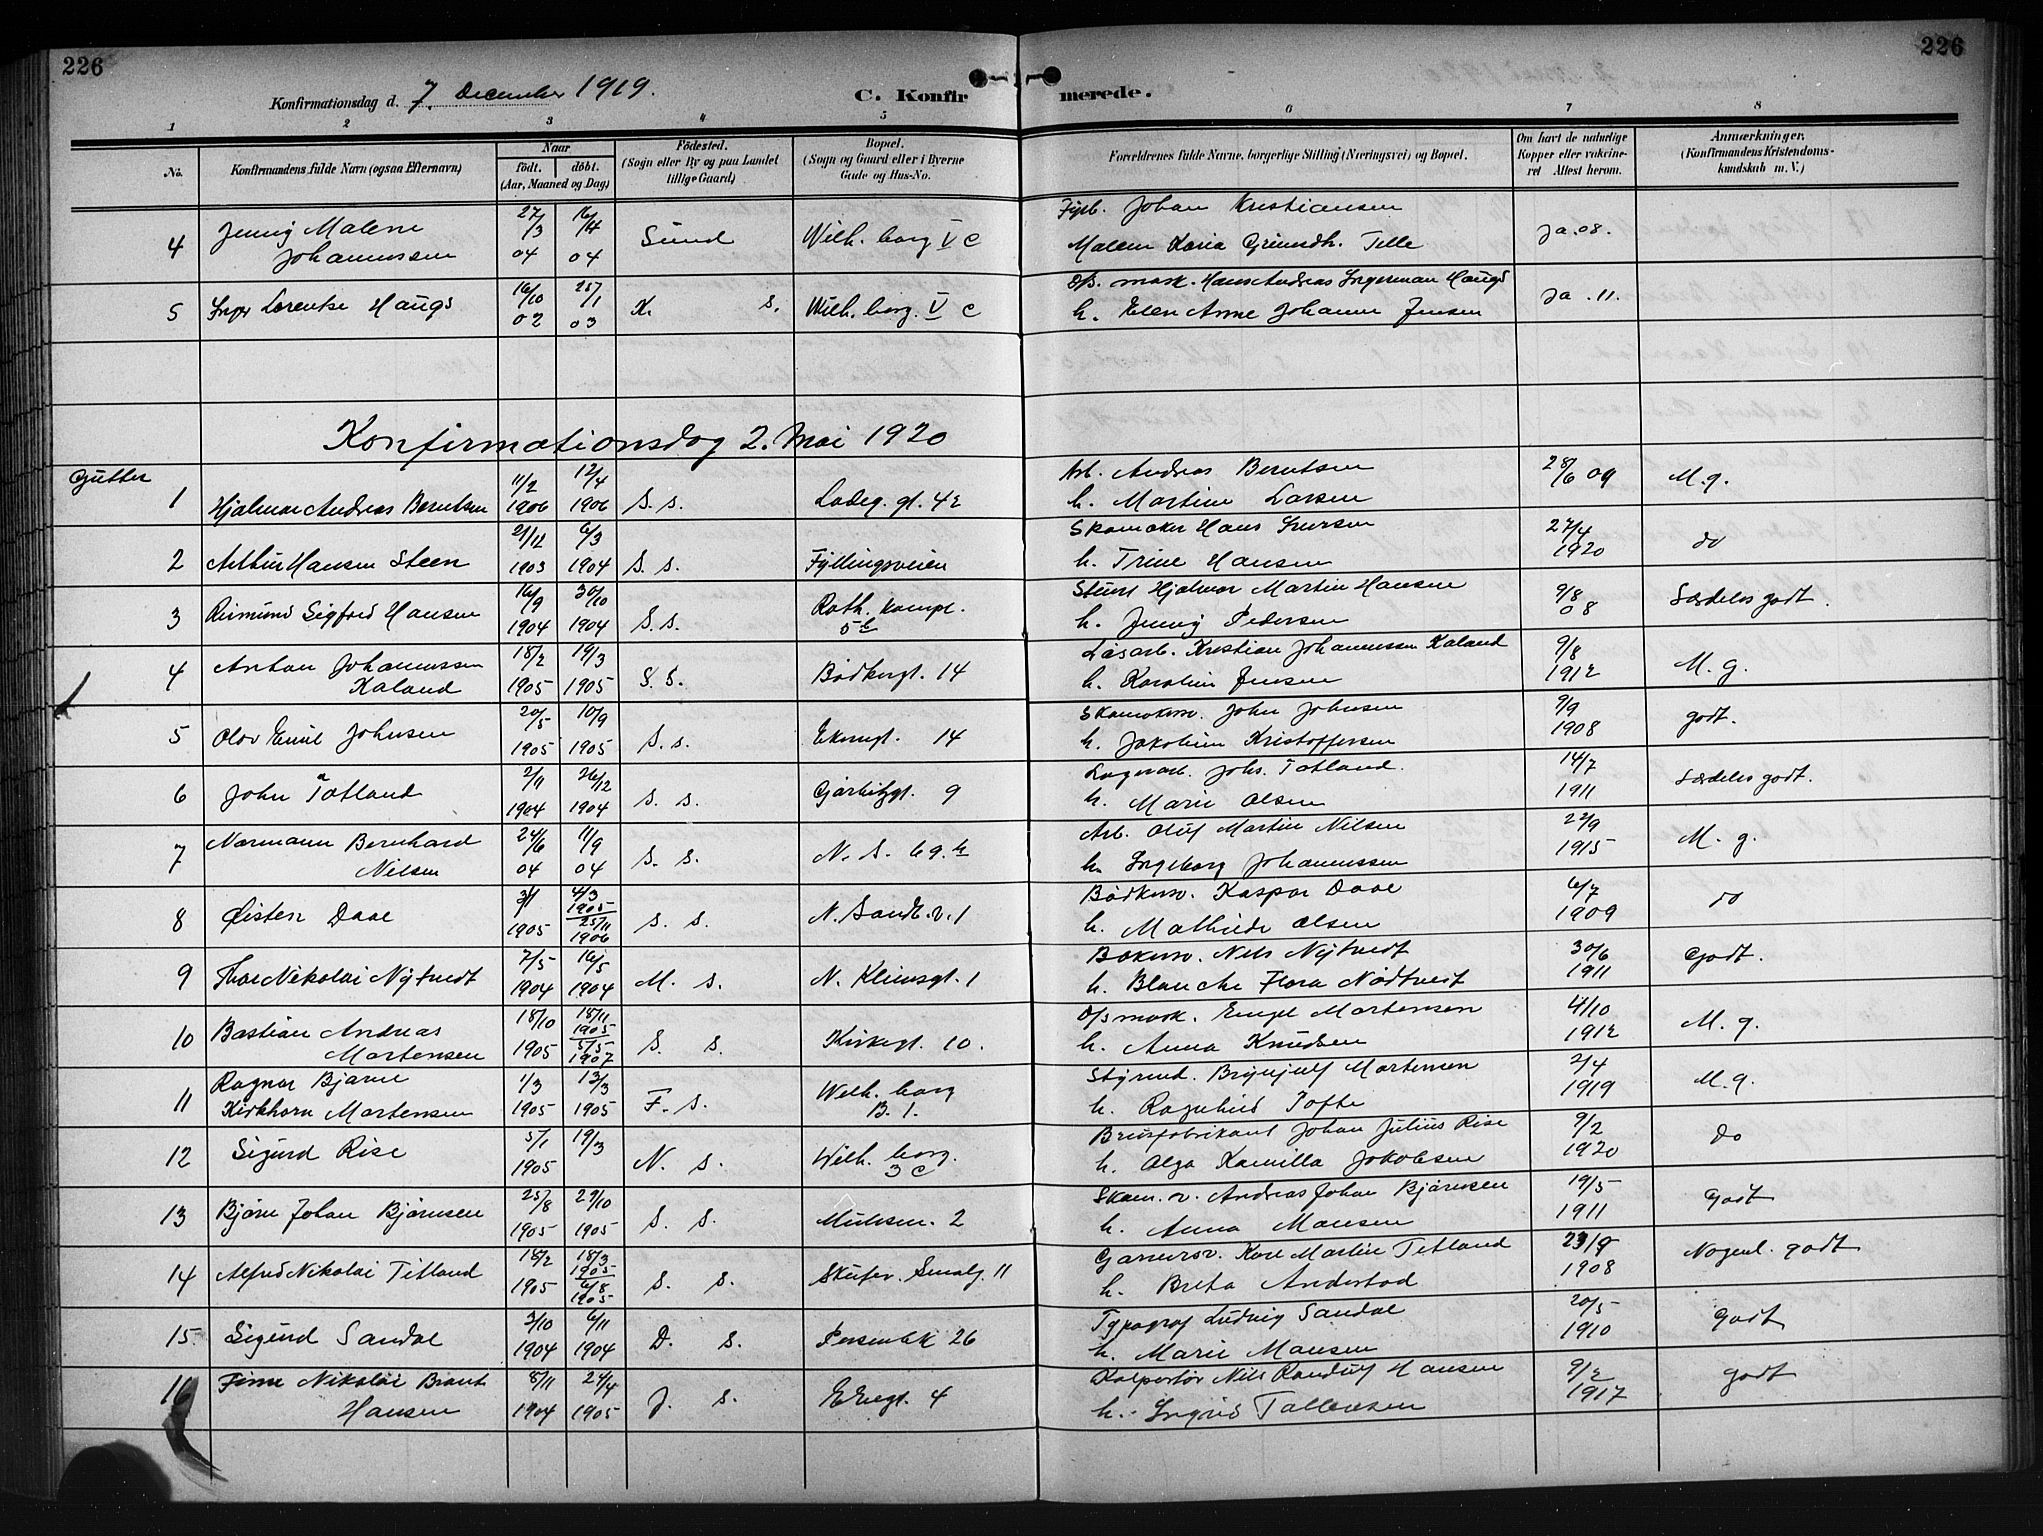 226
226
Konfirmationsdag d. 7. December 1919.
C. Konfirmerede.
1 2 3 4 5 6 7 8
No.
Konfirmandens fulde Navn (ogsaa Efternavn)
Naar
födt. döbt.
(Aar, Maaned og Dag)
Födested.
(Sogn eller By og paa Landet
tillige Gaard)
Bopæl.
(Sogn og Gaard eller i Byerne
Gade og Hus-No.
Forældrenes fulde Navne, borgerlige Stilling (Næringsvei) og Bopæl.
Om havt de naturlige
Kopper eller vakcine-
ret Attest herom.
Anmærkninger.
(Konfirmandens Kristendoms-
kundskab m. V.)
4 Jenny Malene Johannessen 27/3 04 16/4 04 Sund Wilh. borg V C
Fyrb. Johan Kristiansen
Malene Karia Grimsdh. Telle
Ja. 08.
5 Inger Lorentse Haugs 16/10 02 25/1 03 K. s. Wilh. borg. V C
Ops. mask. Hans Andreas Ingerman Haugs
h. Elen Anne Johanne Jensen
Ja . 11.
Konfirmationsdag 2. Mai 1920
Gutter
1 Hjalmar Andreas Berntsen 11/2 1906 12/4 1906 S. s. Ladeg. gt. 42
Arb. Andreas Berntsen
h. Martine Larsen
28/6 09 M. g.
2 Arthur Hansen Steen 21/12 1903 6/3 1904 S. s. Fyllingsveien
Skomaker Hans Iversen
h. Trine Hansen
27/4 1920 do
3 Reimund Sigfred Hansen 16/9 1904 30/10 1904 S. s. Roth. kampe. 5 b
Stuert Hjalmar Martin Hansen
h. Jenny Pedersen
9/8 08 Særdeles godt.
4 Anton Johannessen Kaland 18/2 1905 19/3 1905 S. S. Bödkergt. 14
Lösarb. Kristian Johannessen Kaland
h. Karoline Jensen
9/8 1912 M. g.
5 Olav Emil Johnsen 20/5 1905 10/9 1905 S. s. Ekrengt. 14
Skomakersv. John Johnsen
h. Jakobine Kristoffersen
9/9 1908 godt.
6 John Totland 2/11 1904 26/12 1904 S. s. Gjærbitzgt. 9
Lagerarb. Johs. Totland.
h. Marie Olsen
14/7 1911 Særdeles godt.
7 Normann Bernhard Nilsen 24/6 04 11/9 04 S. s. N. S. 69. h
Arb. Oluf Martin Nilsen
h. Ingeborg Johannessen
22/9 1915 M. g.
8 Øisten Daae 3/1 1905 4/3 1905 25/11 1906 S. s. N. Sandb. v. 1
Bödkersv. Kaspar Daae
h. Mathilde Olsen
6/7 1909 do
9 Thor Nikolai Nytvedt 7/5 1904 16/5 1904 M. s. N. Kleivsgt. 1
Bakersv. Nils Nytvedt
h. Blanche Flora Nödtvedt
30/6 1911 Godt.
10 Bastian Andreas Mortensen 18/10 1905 18/11 1905 5/5 1907 S. s. Kirkegt. 10.
Ops mask. Engel Mortensen
h. Anna Knudsen
4/10 1912 M. g.
11 Ragnar Bjarne Kirkhorn Mortensen 1/3 1905 13/3 1905 F. s. Welh. borg B. 1.
Styrmd. Brynjulf Mortensen
h. Ragnhild Tofte
2/4 1919 M. g.
12 Sigurd Rise 5/1 1905 19/3 N. s. Welh. borg. 3 C
Brusfabrikant Johan Julius Rise
h. Olga Kamilla Jakobsen
9/2 1920 do
13 Bjarne Johan Bjørnsen 25/8 1905 29/10 1905 S. s. Michsen. 2
Skom. v. Andreas Johan Bjørnsen
h. Anna Monsen
19/5 1911 Godt
14 Alfred Nikolai Titland 18/2 1905 18/3 1905 6/8 1905 S. s. Skutev. Smalg. 11
Garversv. Karl Martin Tetland
h. Brita Anderstad
23/9 1908 Nogenl. godt
15. Sigurd Sandal 3/10 1904 6/11 1904 D. s. Persenbk 26
Typograf Ludvig Sandal
h. Marie Monsen
20/5 1910 Godt
16 Finn Nikolai Brant Hansen 8/11 1904 24/4 1905 J. s. Ekregt. 4
Kolportör Nils Randulf Hansen
h. Ingrid Tollevsen
9/2 1917 godt